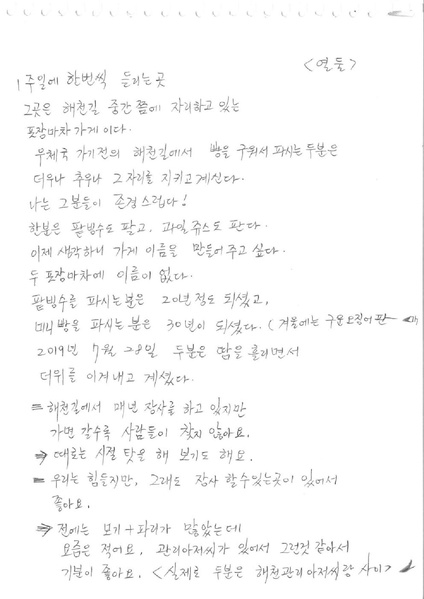 <열둘>
1주일에 한번씩 들리는 곳
그곳은 해천길 중간쯤에 자리하고 있는
포장마차 가게이다.
우체국 가기전의 해천길에서 빵을 구워서 파시는 두분은
더우나 추우나 그자리를 지키고 계신다.
나는 그분들이 존경스럽다!
한분은 팥빙수도 팔고, 과일쥬스도 판다.
이제 생각하니 가게 이름을 만들어주고 싶다.
두 포장마차에 이름이 없다.
팥빙수를 파시는분은 20년정도 되셨고,
미니빵을 파시는 분은 30년이 되셨다. (겨울에는 구운오징어 판
2019년 7월 28일 두분은 땀을 흘리면서
더위를 이겨내고 계셨다.
= 해천길에서 매년 장사를 하고 있지만
가면 갈수록 사람들이 찾지 않아요.
⇒ 때로는 시절 탓을 해 보기도 해요.
= 우리는 힘들지만, 그래도 장사 할수있는곳이 있어서
좋아요.
⇒ 전에는 모기+파리가 많았는데
요즘은 적어요. 관리아저씨가 있어서 그런것 같아서
기분이 좋아요. <실제로 두분은 해천관리아저씨랑 사이>